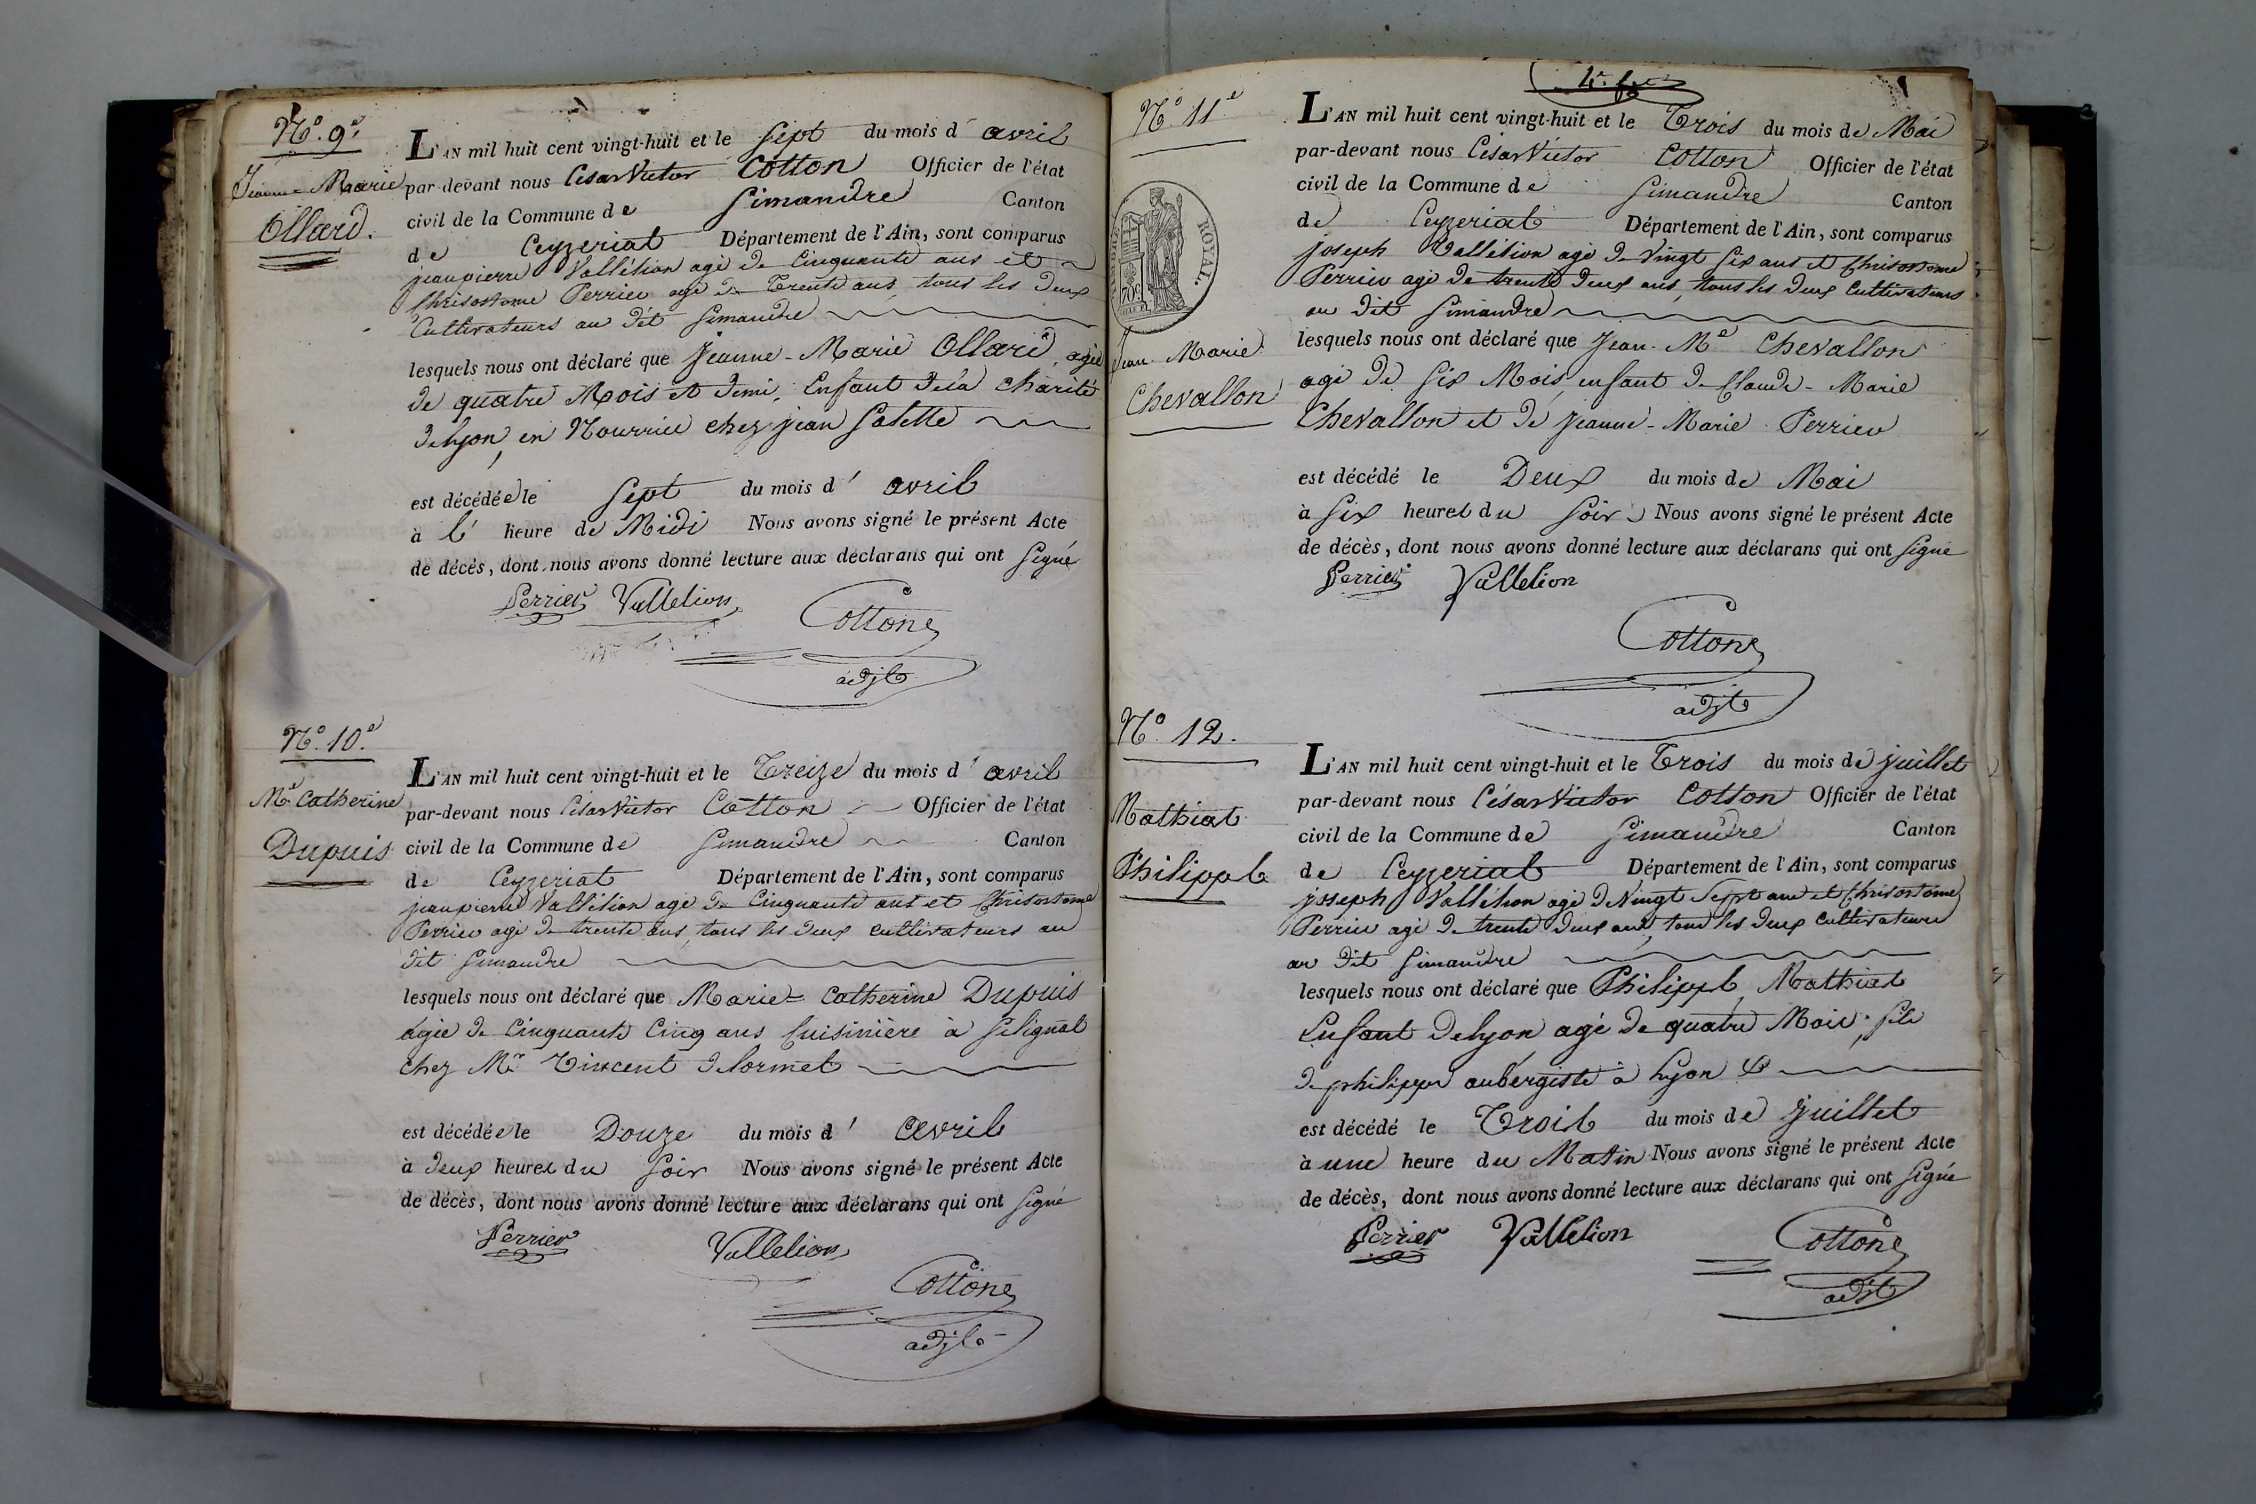 N.° 9.e
Jeanne Marie
Ollard.
L'AN mil huit cent vingt-huit et le sept du mois d' avril
par-devant nous César Victor Cotton Officier de l'état
civil de la Commune de Simandre Canton
de Ceyzeriat Département de l'Ain, sont comparus
jeanpierre Vallélion agé de Cinquante ans et
Chrisostome Perrier agé de Trente ans, tous les deux
Cultivateurs au dit Simandre
lesquels nous ont déclaré que Jeanne-Marie Ollard, agée
de quatre Mois et demi, Enfant de la charité
de lyon, en Nourrice chez jean
est décédée le sept du mois d' avril
à l' heure de Midi Nous avons signé le présent Acte
de décès, dont nous avons donné lecture aux déclarans qui ont signé
Perrier Vallelion
Cotton
adjt
N.° 10.e
Me Catherine
Dupuis
L'AN mil huit cent vingt-huit et le Treize du mois d' avril
par-devant nous César Victor Cotton Officier de l'état
civil de la Commune de Simandre Canton
de Ceyzeriat Département de l'Ain, sont comparus
jeanpierre Vallélion agé de Cinquante ans et Chrisostome
Perrier agé de trente ans, tous les deux cultivateurs au
dit Simandre
lesquels nous ont déclaré que Marie-Catherine Dupuis
agée de Cinquante Cinq ans Cuisinière à Sélignat
chez Mr Vincent delormet
est décédée le Douze du mois d' avril
à deux heures du soir Nous avons signé le présent Acte
de décès, dont nous avons donné lecture aux déclarans qui ont signé
Perrier Vallelion
Cotton
adjt
N.° 11.e
ROYAL.
70c
Jean Marie
Chevallon
L'AN mil huit cent vingt-huit et le Trois du mois de Mai
par-devant nous César Victor Cotton Officier de l'état
civil de la Commune de Simandre Canton
de Ceyzeriat Département de l'Ain, sont comparus
joseph Vallélion agé de vingt six ans et Chrisostome
Perrier agé de trente deux ans, tous les deux Cultivateurs
au dit Simandre
lesquels nous ont déclaré que Jean-Me Chevallon
agé de six Mois, enfant de Claude-Marie
Chevallon et de Jeanne-Marie Perrier
est décédé le Deux du mois de Mai
à six heures du soir Nous avons signé le présent Acte
de décès, dont nous avons donné lecture aux déclarans qui ont signé
Perrier Vallelion
Cotton
adjt
N.° 12.
Mathiat
Philippe
L'AN mil huit cent vingt-huit et le Trois du mois de juillet
par-devant nous César Victor Cotton Officier de l'état
civil de la Commune de Simandre Canton
de Ceyzeriat Département de l'Ain, sont comparus
joseph Vallélion agé de Vingt Sept ans et Chrisostome
Perrier agé de trente deux ans, tous les deux cultivateurs
au dit Simandre
lesquels nous ont déclaré que Philippe Mathiat
Enfant de lyon agé de quatre Mois, fils
de philippe aubergiste à Lyon
est décédé le Trois du mois de juillet
à une heure du Matin Nous avons signé le présent Acte
de décès, dont nous avons donné lecture aux déclarans qui ont signé
Perrier Vallelion
Cotton
adjt